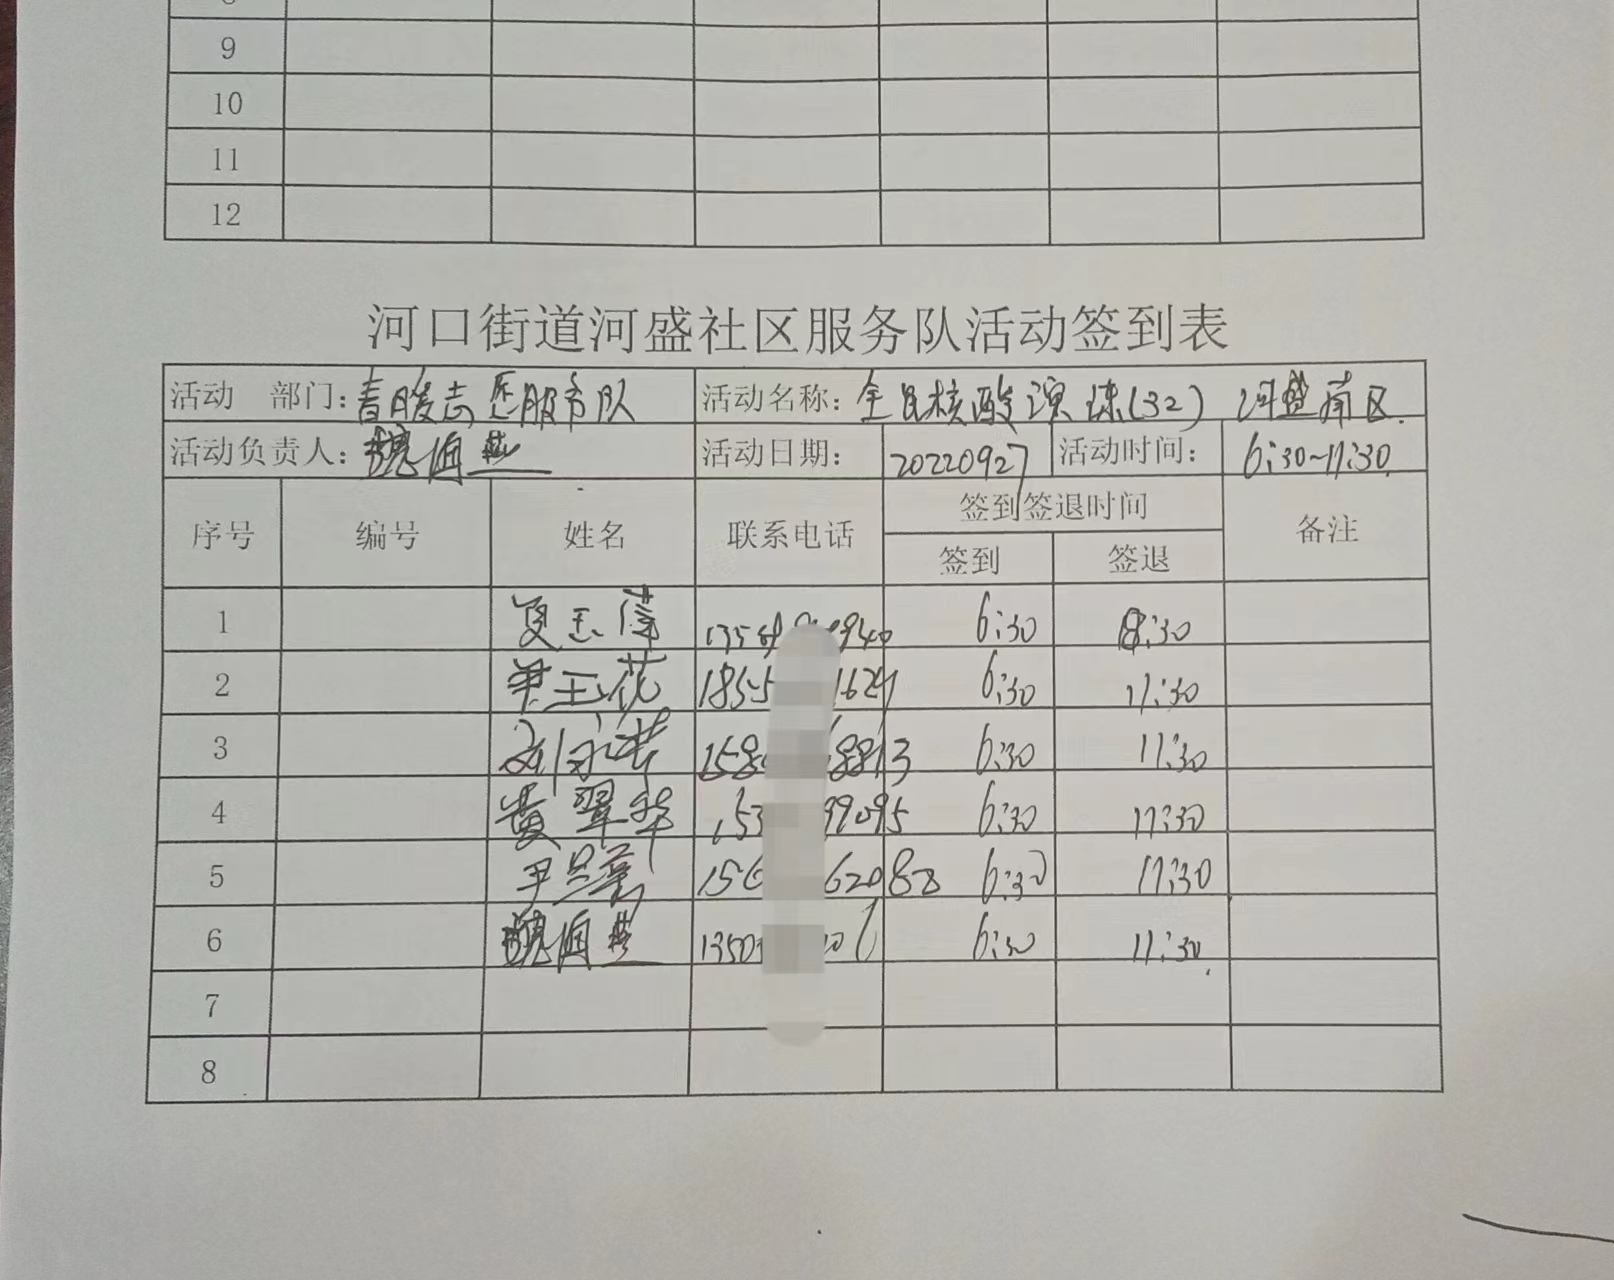 9
10
11
12
河口街道河盛社区服务队活动签到表
活动 部门：春暖志愿服务队 活动名称：全民核酸演练(32) 河盛南区
活动负责人： 活动日期： 20220927 活动时间： 6:30~11:30
签到签退时间
序号 编号 姓名 联系电话 签到 签退 备注
1 6:30 8:30
2 尹玉花 1855 1627 6:30 11:30
3 158 8813 6:30 11:30
4 黄翠华 153 99095 6:30 11:30
5 156 62088 6:30 11:30
6 1350 6:30 11:30
7
8